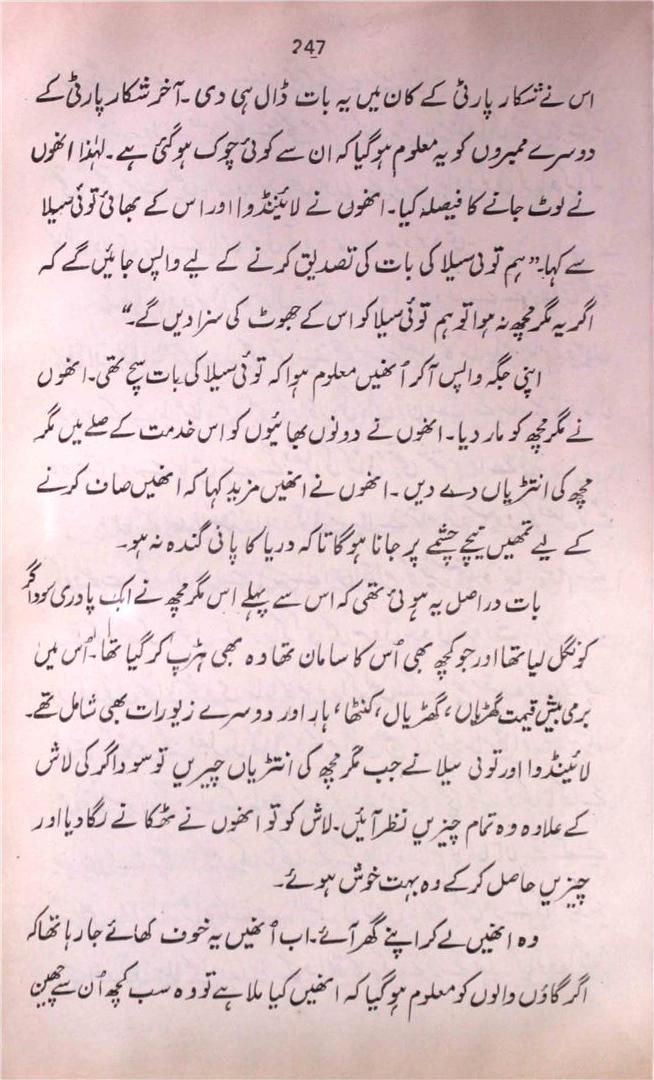 247
اس نے شکار پارٹی کے کان میں یہ بات ڈال ہی دی ۔ آخر شکار پارٹی کے
دوسرے ممبروں کو یہ معلوم ہوگیا کہ ان سے کوئی چوک ہوگئی ہے۔ لہٰذا انھوں
نے لوٹ جانے کا فیصلہ کیا۔ انھوں نے لائینڈوا اور اس کے بھائی توئی سیلا
سے کہا۔ ” ہم توئی سیلا کی بات کی تصدیق کرنے کے لیے واپس جائیں گے کہ
اگر یہ مگرمچھ نہ ہوا تو ہم توئی سیلا کو اس کے جھوٹ کی سزا دیں گے۔“
اپنی جگہ واپس آکر اُنھیں معلوم ہوا کہ توئی سیلا کی بات سچ تھی۔ انھوں
نے مگرمچھ کو مار دیا۔ انھوں نے دونوں بھائیوں کو اس خدمت کے صلے میں مگر
مچھ کی انتڑیاں دے دیں ۔ انھوں نے انھیں مزید کہا کہ انھیں صاف کرنے
کے لیے تمھیں نیچے چشمے پر جانا ہوگا تاکہ دریا کا پانی گندہ نہ ہو۔
بات دراصل یہ ہوئی تھی کہ اس سے پہلے اس مگرمچھ نے ایک پادری
کو نگل لیا تھا اور جو کچھ بھی اُس کا سامان تھا وہ بھی ہڑپ کر گیا تھا۔ اُس میں
برمی بیش قیمت گھڑیاں، گھڑیال، کنٹھا، ہار اور دوسرے زیورات بھی شامل تھے۔
لائینڈوا اور توئی سیلا نے جب مگرمچھ کی انتڑیاں چیریں تو سوداگر کی لاش
کے علاوہ وہ تمام چیزیں نظر آئیں۔ لاش کو تو انھوں نے ٹھکانے لگا دیا اور
چیزیں حاصل کرکے وہ بہت خوش ہوئے۔
وہ انھیں لے کر اپنے گھر آئے۔ اب اُنھیں یہ خوف کھائے جا رہا تھا کہ
اگر گاؤں والوں کو معلوم ہوگیا کہ انھیں کیا ملا ہے تو وہ سب کچھ اُن سے چھین